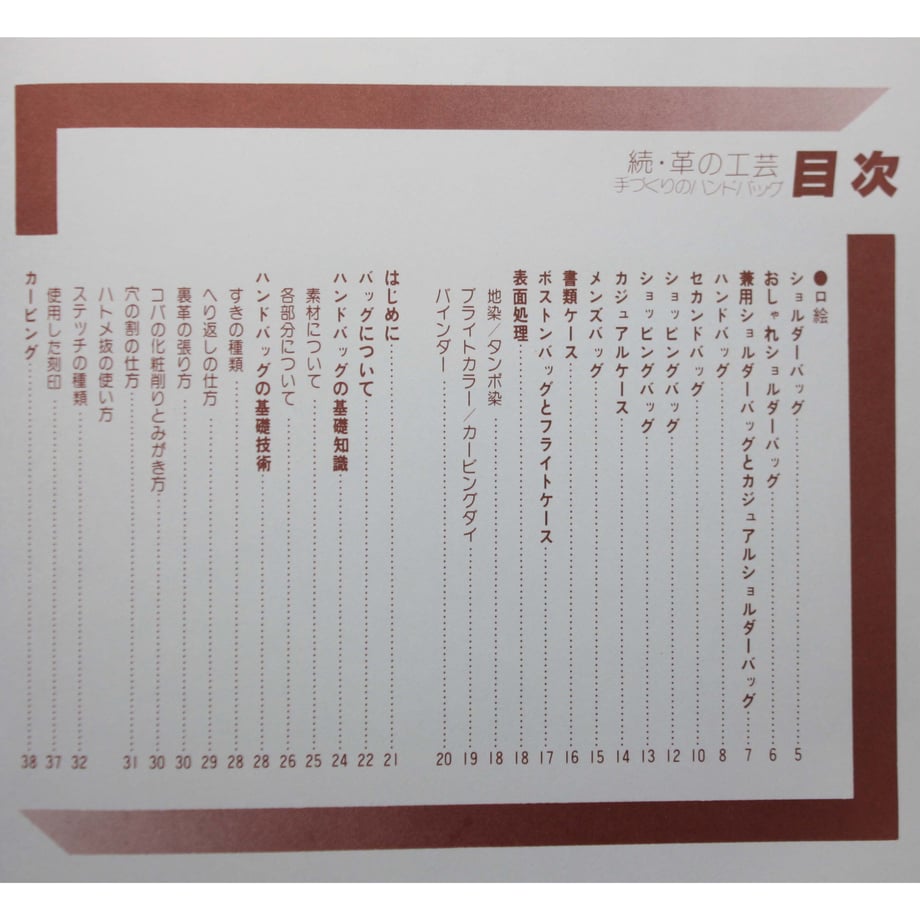 目次
続・革の工芸
手づくりのハンドバッグ
●口絵
ショルダーバッグ……5
おしゃれショルダーバッグ……6
兼用ショルダーバッグとカジュアルショルダーバッグ……7
ハンドバッグ……8
セカンドバッグ……10
ショッピングバッグ……12
ショッピングバッグ……13
カジュアルケース……14
メンズバッグ……15
書類ケース……16
ボストンバッグとフライトケース……17
表面処理……18
地染/タンポ染……18
ブライトカラー/カービングダイ……19
バインダー……20
はじめに……21
バッグについて……22
ハンドバッグの基礎知識……24
素材について……25
各部分について……26
ハンドバッグの基礎技術……28
すきの種類……28
へり返しの仕方……29
裏革の張り方……30
コバの化粧削りとみがき方……30
穴の割の仕方……31
ハトメ抜の使い方
ステッチの種類……32
使用した刻印……37
カービング……38